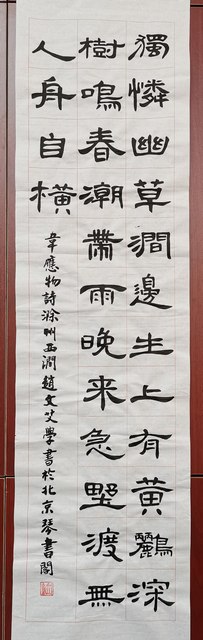 獨憐幽草澗邊生上有黃鸝深
樹鳴春潮帶雨晚来急野渡無
人舟自橫
韋應物詩滁州西澗趙文艾學書於北京琴書閣